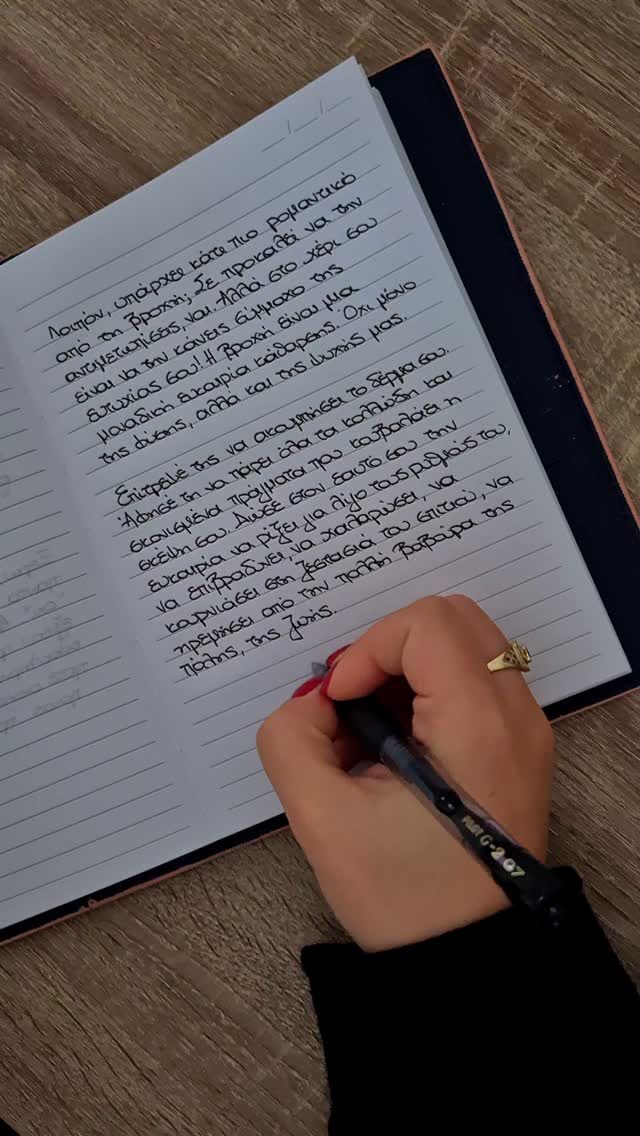 Λοιπόν, υπάρχει κάτι πιο ρομαντικό
από τη βροχή; Σε προκαλά να την
αντιμετωπίσεις, ναι. Αλλά στο χέρι σου
είναι να την κάνεις σύμμαχο της
ευτυχίας σου! Η βροχή είναι μια
μοναδική ευκαιρία κάθαρσης. Όχι μόνο
της φύσης, αλλά και της ψυχής μας.
Επίτρεψέ της να ακουμπήσει το δέρμα σου.
Άφησέ τη να πάρει όλα τα καλλώδη και
σκονισμένα πράγματα που κουβαλάει η
σκέψη σου. Δώσε στον εαυτό σου την
ευκαιρία να ρίξει για λίγο τους ρυθμούς του,
να επιβραδύνει, να χαλαρώσει, να
κουρνιάσει στη ζεστασιά του σπιτιού, να
ηρεμήσει από την πολλή βαβούρα της
πόλης, της ζωής.
PILOT G-2 07